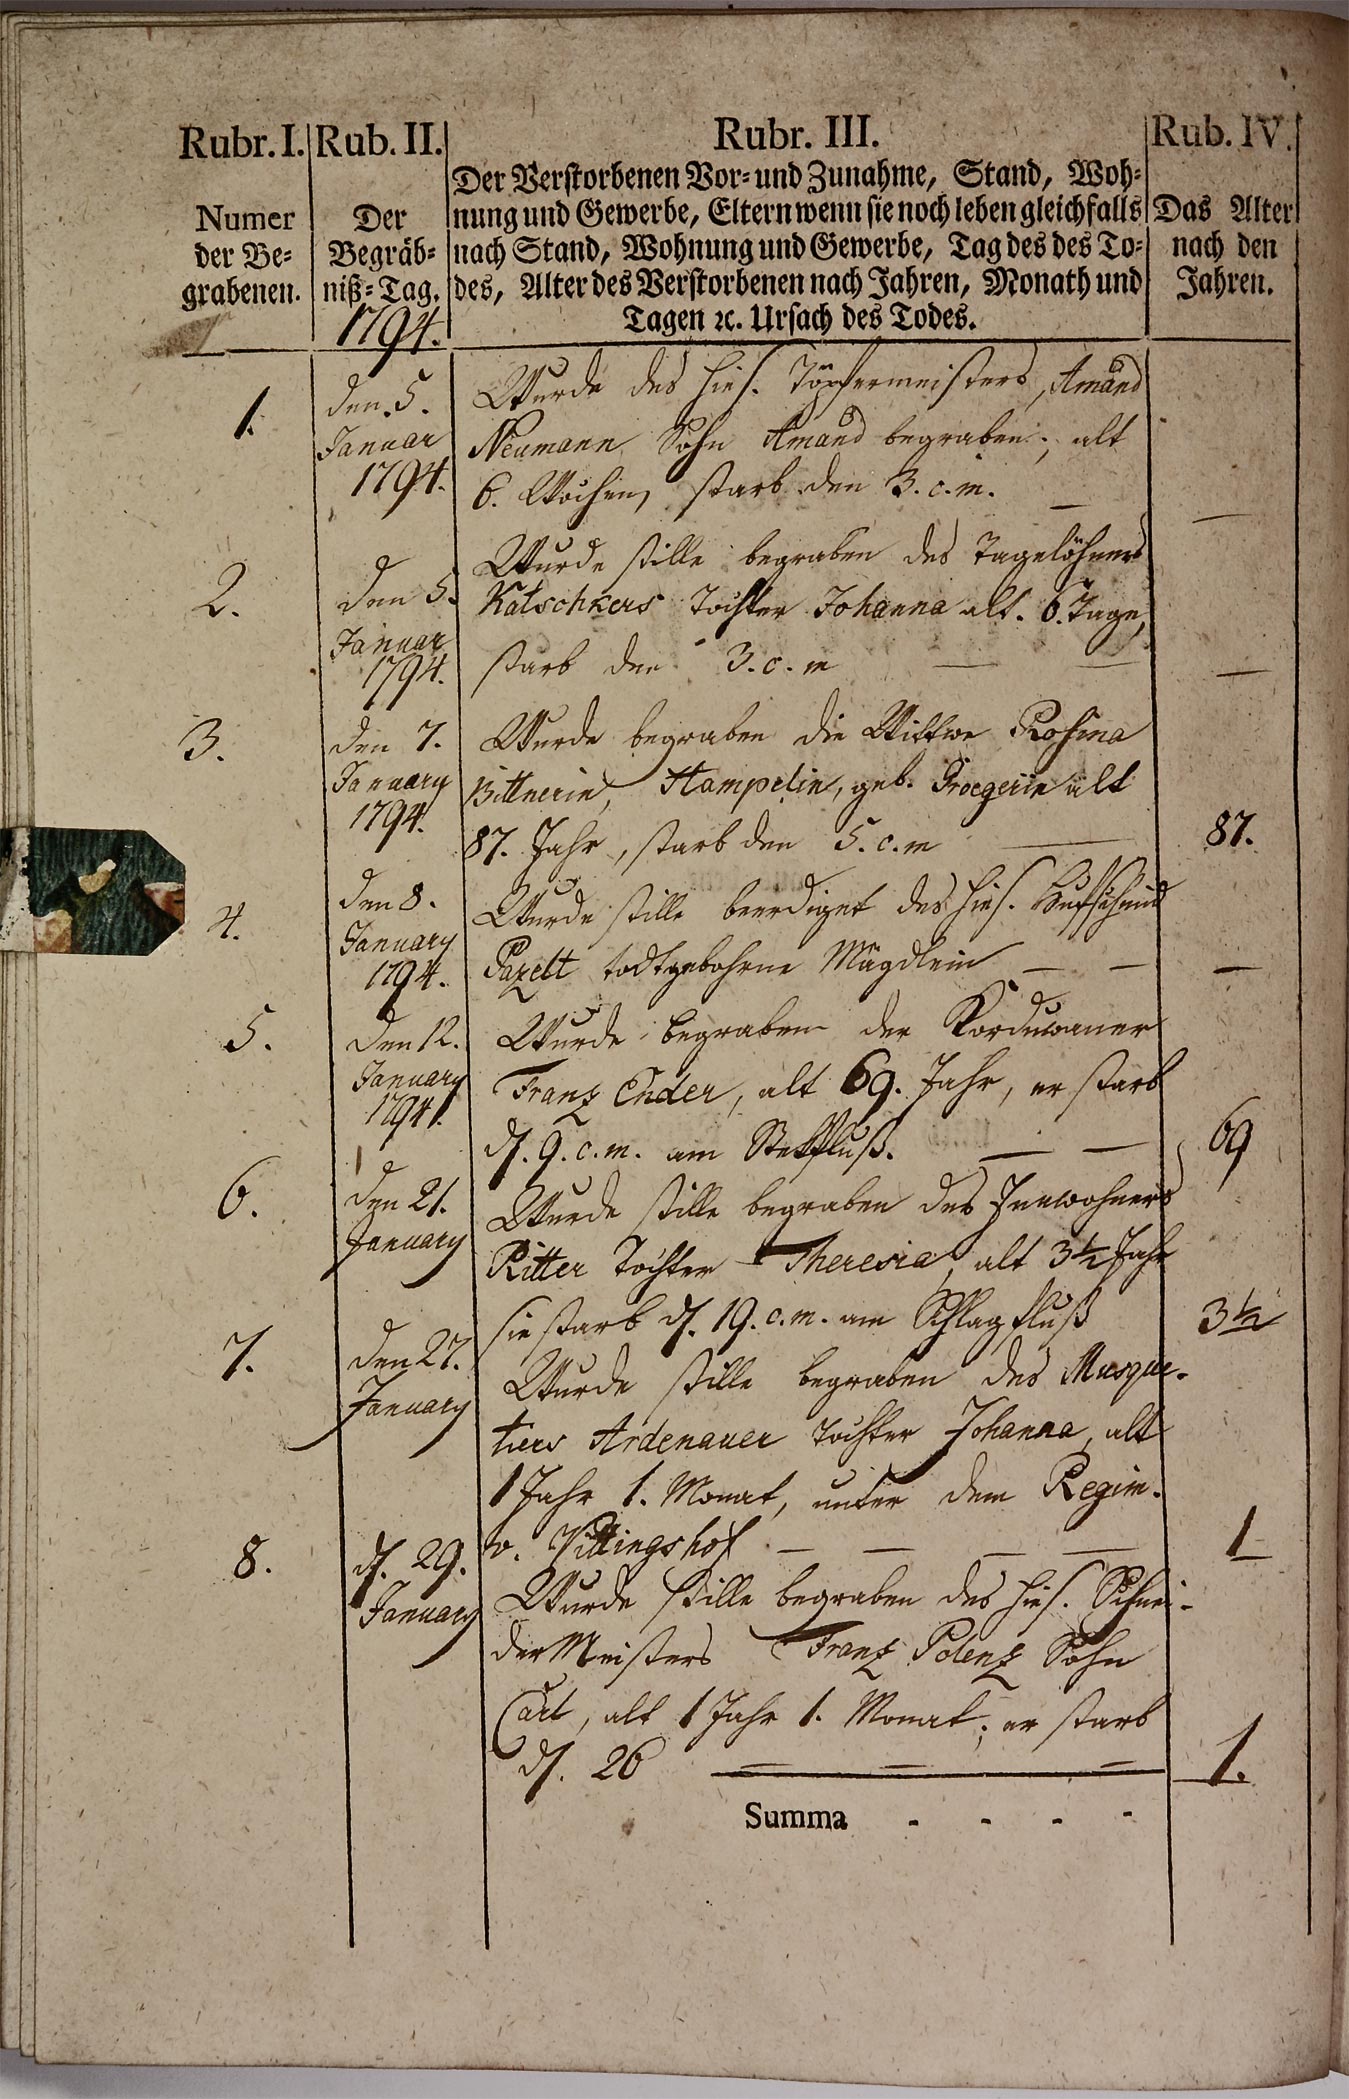 Rubr. I. Rub. II. Rubr. III. Rub. IV.
Numer
der Be-
grabenen.
Der
Begräb-
niß-Tag.
1794.
Der Verstorbenen Vor- und Zunahme, Stand, Woh-
nung und Gewerbe, Eltern wenn sie noch leben gleichfalls
nach Stand, Wohnung und Gewerbe, Tag des des To-
des, Alter des Verstorbenen nach Jahren, Monath und
Tagen ꝛc. Ursach des Todes.
Das Alter
nach den
Jahren.
1.
den. 5.
Januar
1794.
Wurde des hies. Töpfermeisters, Amand
Neumann Sohn Amand begraben, alt
6. Wochen, starb den 3. c. m. —
—
2.
den 5.
Januar
1794.
Wurde stille begraben des Tagelöhners
Katschkers Tochter Johanna alt. 6. Tage,
starb den 3. c. m — —
—
3.
den 7.
January
1794.
Wurde begraben die Wittwe Rosina
Bittnerin, Hampelin, geb. Proegerin alt
87. Jahr, starb den 5. c. m —
87.
4.
den 8.
January
1794.
Wurde stille beerdiget des hies. Hufschmid
Pazelt todtgebohrne Mägdlein — —
—
5.
den 12.
January
1794.
Wurde begraben der Korduwaner
Franz Ender, alt 69. Jahr, er starb
d. 9. c. m. am Stekfluß. — —
69
6.
den 21.
January
Wurde stille begraben des Inwohners
Ritter Tochter Theresia, alt 3½ Jahr
sie starb d. 19. c. m. am Schlagfluß
3½
7.
den 27.
January
Wurde stille begraben des Musque-
tiers Ardenauer Tochter Johanna, alt
1 Jahr 1. Monat, unter dem Regim.
v. Vittingshof — — — —
1
8.
d. 29.
January
Wurde stille begraben des hies. Schnei-
der Meisters Franz Polenz Sohn
Carl, alt 1 Jahr 1. Monat; er starb
d. 26 — — —
1.
Summa - - - -